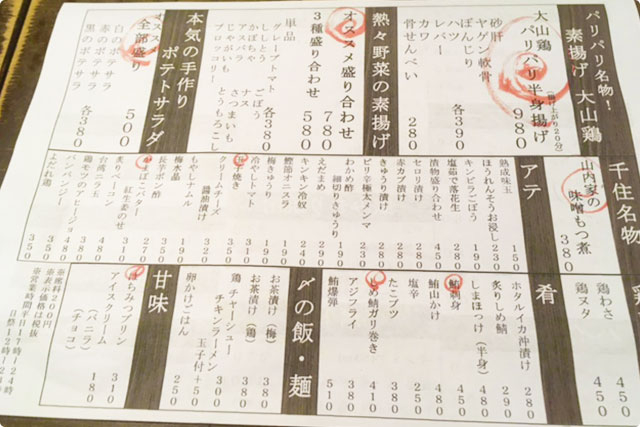 パリパリ名物！
素揚げ 大山鶏
大山鶏 パリパリ半身揚げ 980
(揚げ上がり20分)
砂肝
ヤゲン軟骨
ぼんじり
ハツ
レバー
カワ
各390
骨せんべい 280
熱々野菜の素揚げ
オススメ盛り合わせ 780
3種盛り合わせ 580
単品 各380
グレープトマト
ししとう ごぼう
かぼちゃ ナス
じゃがいも さつまいも
アスパラ
ブロッコリー とうもろこし
本気の手作り
ポテトサラダ
オススメ
全部盛り 500
白のポテサラ
赤のポテサラ
黒のポテサラ
各380
千住名物
山内家の
味噌もつ煮 380
アテ
熟成味玉 150
ほうれんそうお浸し 230
キンピラごぼう 190
塩茹で落花生 280
漬物盛り合わせ 450
セロリ漬け 280
赤カブ漬け 280
きゅうり漬け 280
ピリ辛極太メンマ 230
わかめ酢 190
えだまめ 290
キンキン冷奴 240
鰹節オニスラ
梅きゅうり
冷やしトマト
クリームチーズ
醤油漬け 320
もやしナムル 210
梅水晶
長芋ポン酢
かまぼこバター 270
紅生姜のせ
炙りベーコン
台湾ニラ玉
鶏モツのアヒージョ 480
バンバンジー
よだれ鶏 350
鶏わさ 450
鶏ヌタ 450
肴
ホタルイカ沖漬け 280
炙りしめ鯖 290
しまほっけ(半身) 480
鮪刺身 450
鮪山かけ 480
塩辛 250
たこブツ 380
とろ鯖ガリ巻き 410
アジフライ 380
鮪爆弾 510
〆の飯・麺
お茶漬け(梅)
お茶漬け(鶏) 380
鶏チャーシュー
チキンラーメン 300
玉子付+50
卵かけごはん 250
甘味
はちみつプリン 310
アイスクリーム 180
(バニラ)
(チョコ)
※席料200円
※表示価格は税抜
※営業時間 平日17時~24時